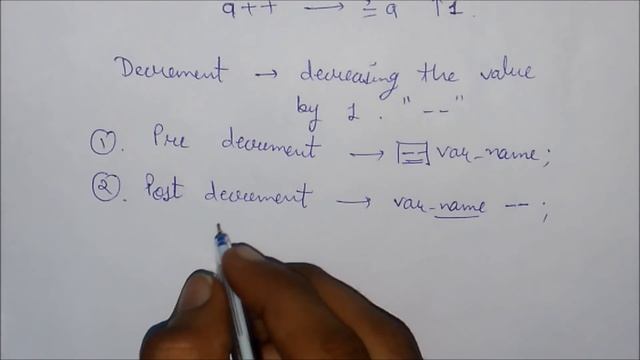 a++ → = a ↑1.
Decrement → decreasing the value
by 1. "--"
①. Pre decrement → -- var_name;
②. Post decrement → var_name --;